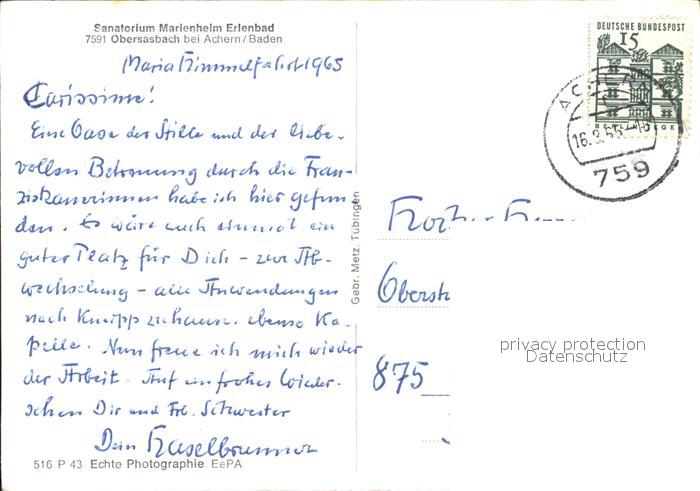 Sanatorium Marienheim Erlenbad
7591 Obersasbach bei Achern/Baden
Maria Himmelfahrt 1965
Carissime!
Eine Oase der Stille und der liebe-
vollen Betreuung durch die Fran-
ziskanerinnen habe ich hier gefun-
den. Es wäre auch einmal ein
guter Platz für Dich - zur Ab-
wechslung - alle Anwendungen
nach Kneipp zuhause. ebenso Ka-
pelle. Nun freue ich mich wieder
der Arbeit. Auf ein frohes Wieder-
sehen Dir und Frl. Schwester
Dein Haselbrunner
516 P 43 Echte Photographie EePA
Gebr. Metz, Tübingen
DEUTSCHE BUNDESPOST
15
ACHERN
759
Herrn
875
privacy protection
Datenschutz